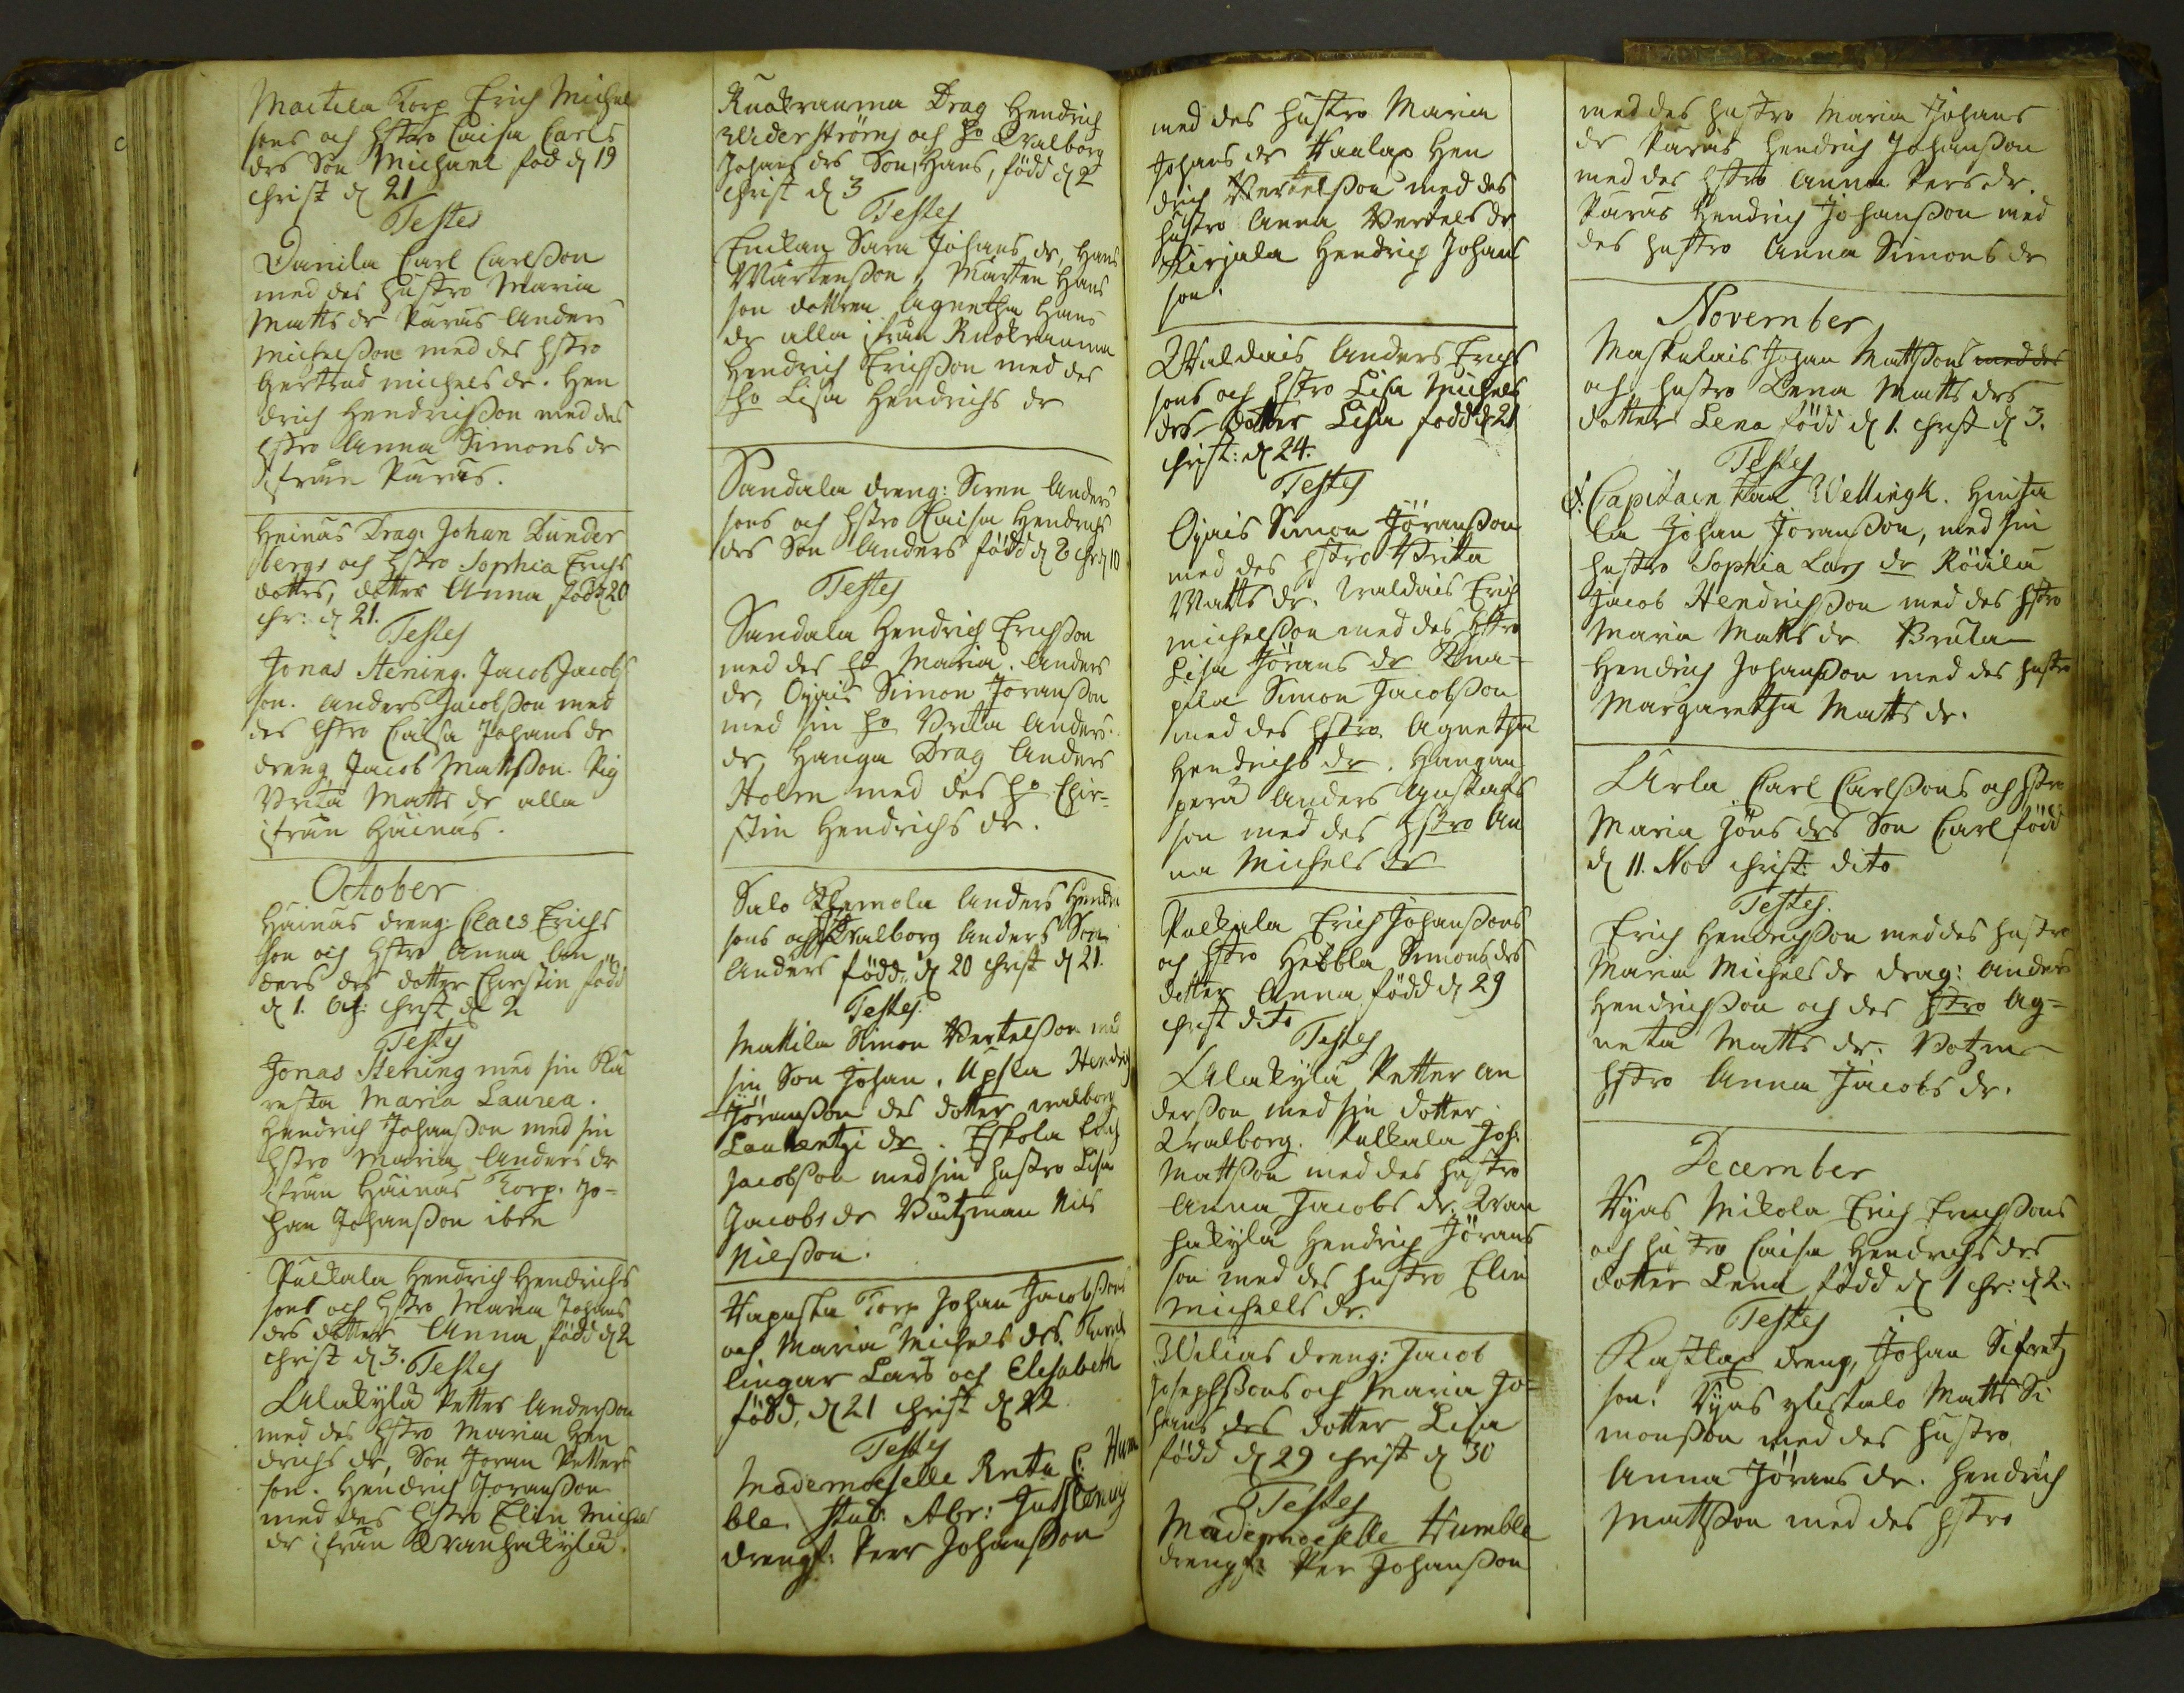 Mattila Torp Erich Michel
sons och hstro Caisa Carls
drs Son Michael föd d 19
christ d 21
Testes
Danila Carl Carlsson
med des hustro Maria
Matts dr Parus Anders
Michelsson med des hstro
Gertrud Michels dr. Hen
drich Hendrichsson med des
hstro Anna Simons dr
ifrån Parus.
Heinas Drag: Johan Dunder
bergs och hstro Sophia Erichs
dotters, dotter Anna född 20
chr: d 21.
Testes
Jonas Hening. Jacob Jacobs
son. Anders Jacobsson med
des hstro Caisa Johans dr
dreng Jacob Mattsson. Pig
Brita Matts dr alla
ifrån Häinas.
October
Häinas dreng: Claes Erichs
son och hstro Anna An
ders drs dotter Christin född
d 1. Oct: christ d 2
Testes
Jonas Hening med sin Kä
resta Maria Laurea.
Hendrich Johansson med sin
hstro Maria Anders dr
ifrån Häinas Torp. Jo=
han Johansson ibm
Pulkala Hendrich Hendrichs
sons och hstro Maria Johans
drs dotter Anna född d 2
christ d 3. Testes
Alakylä Petter Andersson
med des hstro Maria Hen
drichs dr, Son Joran Petters
son. Hendrich Joransson
med des hstro Elin Michels
dr ifrån Wanhakylä.
Ruokrauma Drag Hendrich
Widerströms och ho Walborg
Johans drs Son, Hans, född d 2
christ d 3
Testes
Enckan Sara Johans dr, Hans
Mårtensson, Mårten Hans
son dottren Agnetha Hans
dr alla ifrån Ruokrauma
Hendrich Erichsson med des
ho Lisa Hendrichs dr
Sandala dreng: Sven Anders
sons och hstro Caisa Hendrichs
drs Son Anders född d 8 chr d 10
Testes
Sandala Hendrich Erichsson
med des ho Maria Anders
dr, Ojais Simon Joransson
med sin ho Brita Anders
dr, Hanga Drag Anders
Holm med des ho Chir=
stin Hendrichs dr.
Salo Klemola Anders Hendri
sons och Walborg Anders Son
Anders född d 20 christ d 21.
Testes
Mattila Simon Bertelsson med
sin Son Johan. Upsla Hendrich
Jöransson des dotter Walborg
Laurentzi dr. Eskola Erich
Jacobsson med sin hustro Lisa
Jacobs dr Båtzman Nils
Nilsson.
Hapusta Torp Johan Jacobssons
och Maria Michels drs.
lingar Lars och Elisabeth
född, d 21 christ d 22
Testes
Mademoiselle Reeta C: Hum
ble. Stud: Abr:
drengs: Peer Johansson
med des hustro Maria
Johans dr Haulax Hen
drich Bertelsson med des
hustro Anna Bertels dr
Kirjala Hendrich Johans
son.
Waldais Anders Erichs
sons och hstro Lisa Michels
drs dotter Lisa född d 21
christ: d 24.
Testes
Ojais Simon Jöransson
med des hstro Brita
Matts dr. Waldais Erich
Michelsson med des hstro
Lisa Jörans dr
Simon Jacobsson
med des hstro. Agnetha
Hendrichs dr. Hangan
perä Anders Gustafs
son med des hstro An
na Michels dr
Pulkala Erich Johanssons
och hstro Hebbla Simons drs
dotter Anna född d 29
christ dito
Testes
Alakylä Petter An
dersson med sin dotter
Walborg. Pulkala Joh:
Mattsson med des hustro
Anna Jacobs dr. Wan
hakylä Hendrich Jörans
son med des hustro Elin
Michells dr.
Wilias dreng: Jacob
Josephssons och Maria Jo=
hans drs dotter Lisa
född d 29 christ d 30
Testes
Mademoiselle Humble
drengs: Per Johansson
med des hustro Maria Johans
dr Parus Hendrich Johansson
med des hstro Anna Pers dr.
Parus Hendrich Johansson med
des hustro Anna Simons dr
November
Maskulais Johan Mattssons med des
och hustro Lena Matts drs
dotter Lena född d 1. christ d 3.
Testes
Capitain von Wellingk.
la Johan Joransson, med sin
hustro Sophia Lars dr Röälä
Jacob Hendrichsson med des hstro
Maria Matts dr
Hendrich Johansson med des hustro
Margaretha Matts dr.
Urla Carl Carlssons och hstro
Maria Jöns drs Son Carl född
d 11. Nov christ: dito
Testes.
Erich Hendrichsson med des hustro
Maria Michels dr drag: Anders
Hendrichsson och des hstro Ag=
neta Matts dr. Botzm
hstro Anna Jacobs dr.
December
Vyas Mikola Erich Erichssons
och hustro Caisa Hendrichs drs
dotter Lena född d 1 chr: d 2.
Testes
Kastlax dreng, Johan Sifretz
son. Vyas Ylistalo Matts Si
monsson med des hustro
Anna Jörans dr. Hendrich
Mattsson med des hstro